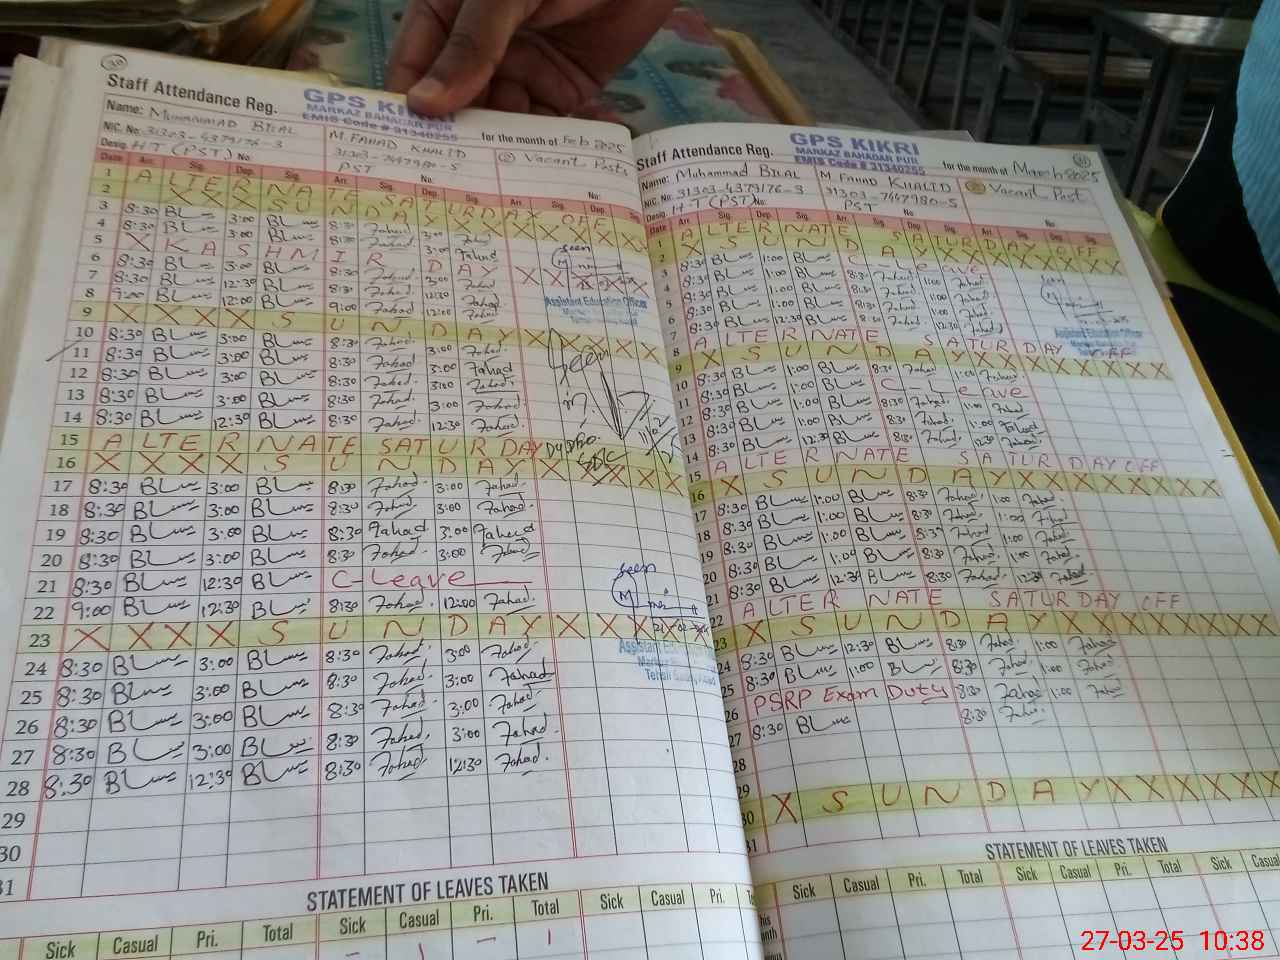 30
Staff Attendance Reg.
GPS KIKRI
MARKAZ BAHADAR PUR
EMIS Code # 31340255
for the month of Feb 2025
Name: MUHAMMAD BILAL
M. FAHAD KHALID
Vacant Posts
NIC. No. 31303-4379176-3
31303-7447980-5
Desig. HT (PST) No:
PST No:
No:
Date Arr. Sig. Dep. Sig. Arr. Sig. Dep. Sig. Arr. Sig. Dep. Sig.
1 ALTERNATE SATURDAY OFF
2 X X X X S U N D A Y X X X X X
3 8:30 BL 3:00 BL 8:30 Fahad 3:00 Fahad
4 8:30 BL 3:00 BL 8:30 Fahad 3:00 Fahad
5 X KASHMIR DAY X X X X X
6 8:30 BL 3:00 BL 8:30 Fahad 3:00 Fahad
7 8:30 BL 12:30 BL 8:30 Fahad 12:30 Fahad
8 9:00 BL 12:00 BL 9:00 Fahad 12:00 Fahad
9 X X X X S U N D A Y X X X X X
10 8:30 BL 3:00 BL 8:30 Fahad 3:00 Fahad
11 8:30 BL 3:00 BL 8:30 Fahad 3:00 Fahad
12 8:30 BL 3:00 BL 8:30 Fahad 3:00 Fahad
13 8:30 BL 3:00 BL 8:30 Fahad 3:00 Fahad
14 8:30 BL 12:30 BL 8:30 Fahad 12:30 Fahad
15 ALTERNATE SATURDAY
16 X X X X S U N D A Y X X X X X
17 8:30 BL 3:00 BL 8:30 Fahad 3:00 Fahad
18 8:30 BL 3:00 BL 8:30 Fahad 3:00 Fahad
19 8:30 BL 3:00 BL 8:30 Fahad 3:00 Fahad
20 8:30 BL 3:00 BL 8:30 Fahad 3:00 Fahad
21 8:30 BL 12:30 BL C-Leave
22 9:00 BL 12:30 BL 8:30 Fahad 12:00 Fahad
23 X X X X S U N D A Y X X X X X
24 8:30 BL 3:00 BL 8:30 Fahad 3:00 Fahad
25 8:30 BL 3:00 BL 8:30 Fahad 3:00 Fahad
26 8:30 BL 3:00 BL 8:30 Fahad 3:00 Fahad
27 8:30 BL 3:00 BL 8:30 Fahad 3:00 Fahad
28 8:30 BL 12:30 BL 8:30 Fahad 12:30 Fahad
29
30
31
Seen
Assistant Education Officer
Seen
Seen
STATEMENT OF LEAVES TAKEN
Sick Casual Pri. Total Sick Casual Pri. Total Sick Casual Pri.
31
Staff Attendance Reg.
GPS KIKRI
MARKAZ BAHADAR PUR
EMIS Code # 31340255
for the month of March 2025
Name: Muhammad BILAL
M FAHAD KHALID
Vacant Post
NIC. No. 31303-4379176-3
31303-7447980-5
Desig. HT (PST) No:
PST
No:
Arr. Sig. Dep. Sig. Arr. Sig. Dep. Sig. Arr. Sig. Dep. Sig.
1 ALTERNATE SATURDAY OFF
2 X S U N D A Y X X X X X X X
3 8:30 BL 1:00 BL C-Leave
4 8:30 BL 1:00 BL 8:30 Fahad 1:00 Fahad
5 8:30 BL 1:00 BL 8:30 Fahad 1:00 Fahad
6 8:30 BL 1:00 BL 8:30 Fahad 1:00 Fahad
7 8:30 BL 12:30 BL 8:30 Fahad 12:30 Fahad
8 ALTERNATE SATURDAY OFF
9 X S U N D A Y X X X X X X X
10 8:30 BL 1:00 BL 8:30 Fahad 1:00 Fahad
11 8:30 BL 1:00 BL C-Leave
12 8:30 BL 1:00 BL 8:30 Fahad 1:00 Fahad
13 8:30 BL 1:00 BL 8:30 Fahad 1:00 Fahad
14 8:30 BL 12:30 BL 8:30 Fahad 12:30 Fahad
15 ALTERNATE SATURDAY OFF
16 X S U N D A Y X X X X X X X
17 8:30 BL 1:00 BL 8:30 Fahad 1:00 Fahad
18 8:30 BL 1:00 BL 8:30 Fahad 1:00 Fahad
19 8:30 BL 1:00 BL 8:30 Fahad 1:00 Fahad
20 8:30 BL 1:00 BL 8:30 Fahad 1:00 Fahad
21 8:30 BL 12:30 BL 8:30 Fahad 12:30 Fahad
22 ALTERNATE SATURDAY OFF
23 X S U N D A Y X X X X X X X
24 8:30 BL 12:30 BL 8:30 Fahad 1:00 Fahad
25 8:30 BL 1:00 BL 8:30 Fahad 1:00 Fahad
26 PSRP Exam Duty 8:30 Fahad 1:00 Fahad
27 8:30 BL 8:30 Fahad
28
29
30 X S U N D A Y X X X X X X X
31
Seen
Assistant Education Officer
STATEMENT OF LEAVES TAKEN
Sick Casual Pri. Total Sick Casual Pri. Total Sick Casual
27-03-25 10:38